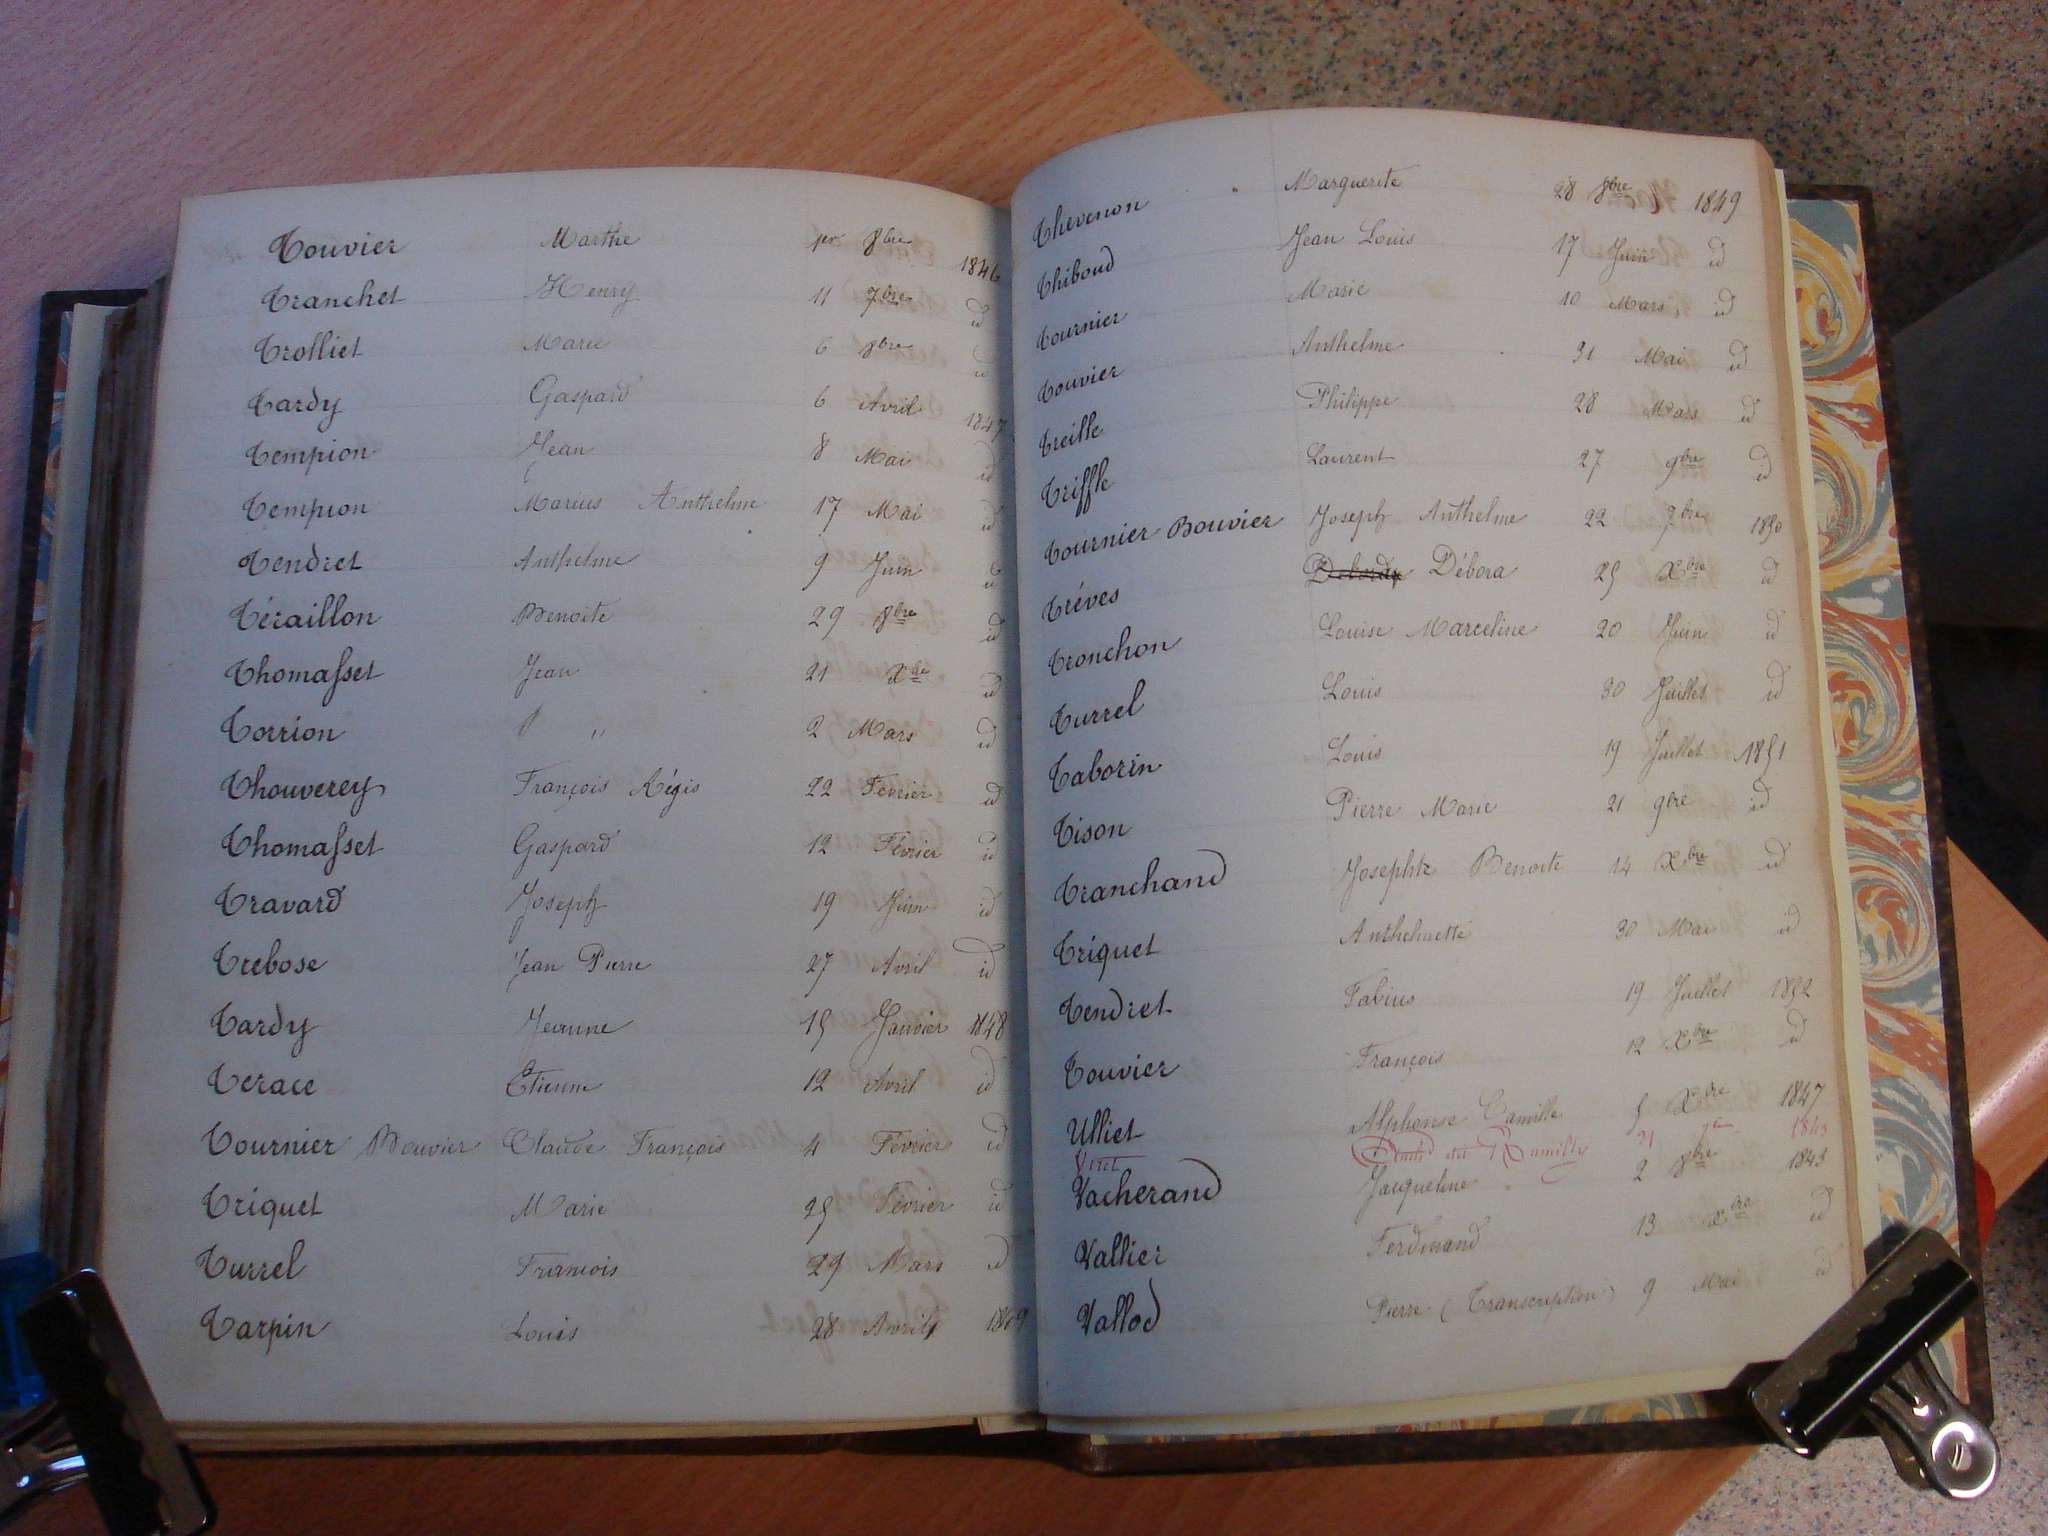 Touvier Marthe pr 8bre 1846
Tranchet Henry 11 7bre id
Trolliet Marie 6 8bre id
Tardy Gaspard 6 Avril 1847
Tempion Jean 8 Mai id
Tempion Marius Anthelme 17 Mai id
Tendret Anthelme 9 Juin id
Téraillon Benoite 29 8bre id
Thomasset Jean 21 Xbre id
Torrion " " 2 Mars id
Thouverey François Régis 22 Février id
Thomasset Gaspard 12 Février id
Travard Joseph 19 Juin id
Trebose Jean Pierre 27 Avril id
Tardy Jeanne 15 Janvier 1848
Terace Etienne 12 Avril id
Tournier Bouvier Claude François 4 Février id
Triquet Marie 25 Février id
Turrel François 29 Mars id
Tarpin Louis 28 Avril 1849
Thevenon Marguerite 28 8bre 1849
Thiboud Jean Louis 17 Juin id
Tournier Marie 10 Mars id
Touvier Anthelme 31 Mai id
Treille Philippe 28 Mars id
Triffle Laurent 27 9bre id
Tournier Bouvier Joseph Anthelme 22 7bre 1850
Tréves Débora 25 Xbre id
Tronchon Louise Marceline 20 Juin id
Turrel Louis 30 Juillet id
Taborin Louis 19 Juillet 1851
Tison Pierre Marie 21 9bre id
Tranchand Josephte Benoite 14 Xbre id
Triquet Anthelmette 30 Mai id
Tendret Fabius 19 Juillet 1852
Touvier François 12 Xbre id
Ulliet Alphonse Camille 5 Xbre 1847
Viret 1843
Vacherand Jacqueline 2 8bre 1843
Vallier Ferdinand 13 Xbre id
Vallod Pierre (Transcription) 9 Mai id